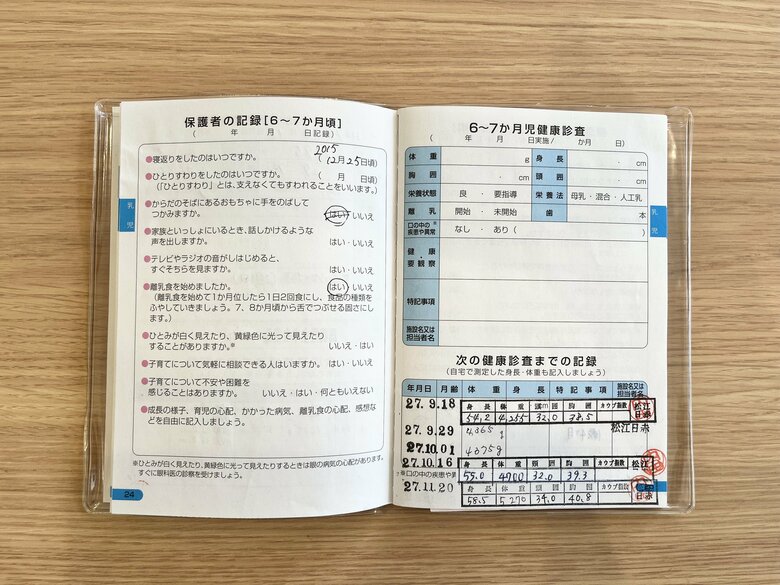 保護者の記録[6～7か月頃]
( 年 月 日記録)
2015
●寝返りをしたのはいつですか。 (12月25日頃)
●ひとりすわりをしたのはいつですか。 ( 月 日)
(「ひとりすわり」とは、支えなくてもすわれることをいいます。)
●からだのそばにあるおもちゃに手をのばして
つかみますか。 はい・いいえ
●家族といっしょにいるとき、話しかけるような
声を出しますか。 はい・いいえ
●テレビやラジオの音がしはじめると、
すぐそちらを見ますか。 はい・いいえ
●離乳食を始めましたか。 はい・いいえ
(離乳食を始めて1か月位したら1日2回食にし、食品の種類を
ふやしていきましょう。7、8か月頃から舌でつぶせる固さにし
ます。)
●ひとみが白く見えたり、黄緑色に光って見えたり
することがありますか。* いいえ・はい
●子育てについて気軽に相談できる人はいますか。 はい・いいえ
●子育てについて不安や困難を
感じることはありますか。 いいえ・はい・何ともいえない
●成長の様子、育児の心配、かかった病気、離乳食の心配、感想な
どを自由に記入しましょう。
※ひとみが白く見えたり、黄緑色に光って見えたりするときは眼の病気の心配があります。
すぐに眼科医の診察を受けましょう。
24
乳児
6～7か月児健康診査
( 年 月 日実施/ か月 日)
体重 g 身長 ・ cm
胸囲 ・ cm 頭囲 ・ cm
栄養状態 良 ・ 要指導 栄養法 母乳・混合・人工乳
離乳 開始・未開始 歯 本
口の中の※
疾患や異常 なし ・ あり( )
健康・要観察
特記事項
施設名又は
担当者名
乳児
次の健康診査までの記録
(自宅で測定した身長・体重も記入しましょう)
年月日 月齢 体重 身長 特記事項 施設名又は
担当者名
27.9.18 身長 体重 頭囲 胸囲 カウプ指数 松江日赤
54.2 4,255 32.0 38.5
27.9.29 4,365g 松江日赤
27.10.01 4375g
27.10.16 身長 体重 頭囲 胸囲 カウプ指数 松江
55.0 4700 32.0 39.3
※口の中の疾患や異
27.11.20 身長 体重 頭囲 胸囲 カウプ指数 日赤
58.5 5,270 34.0 40.8